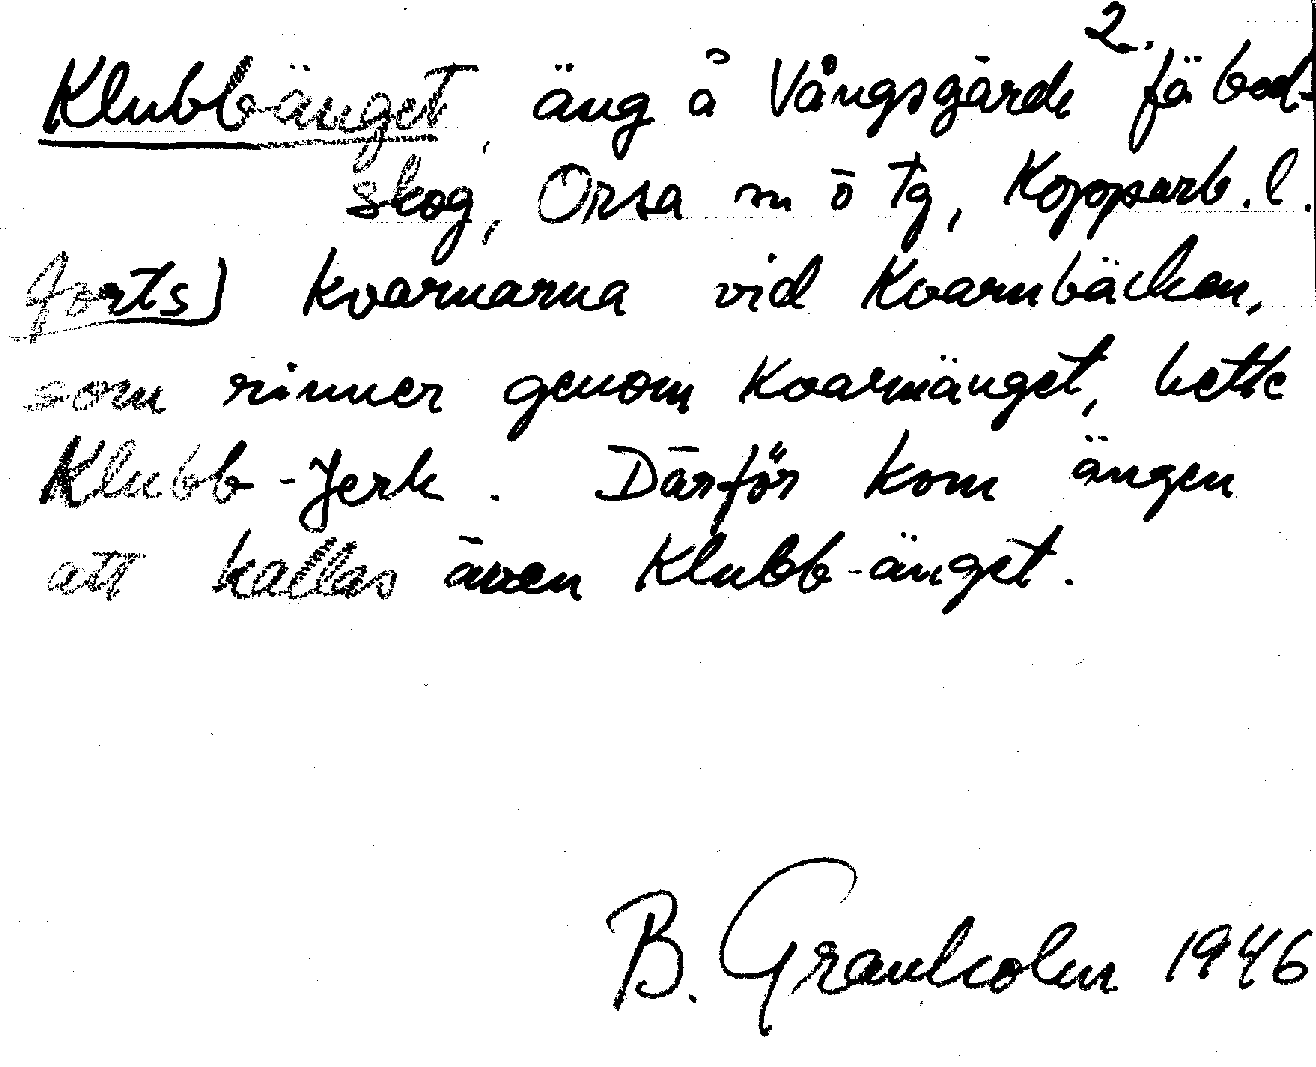 2.
Klubbänget, äng å Vångsgärde fäbod-
skog, Orsa sn o tg, Kopparb. l.
forts) kvarnarna vid Kvarnbäcken,
som rinner genom Kvarnänget, hette
Klubb-Jerk. Därför kom ängen
att kallas även Klubb-änget.
B. Granholm 1946